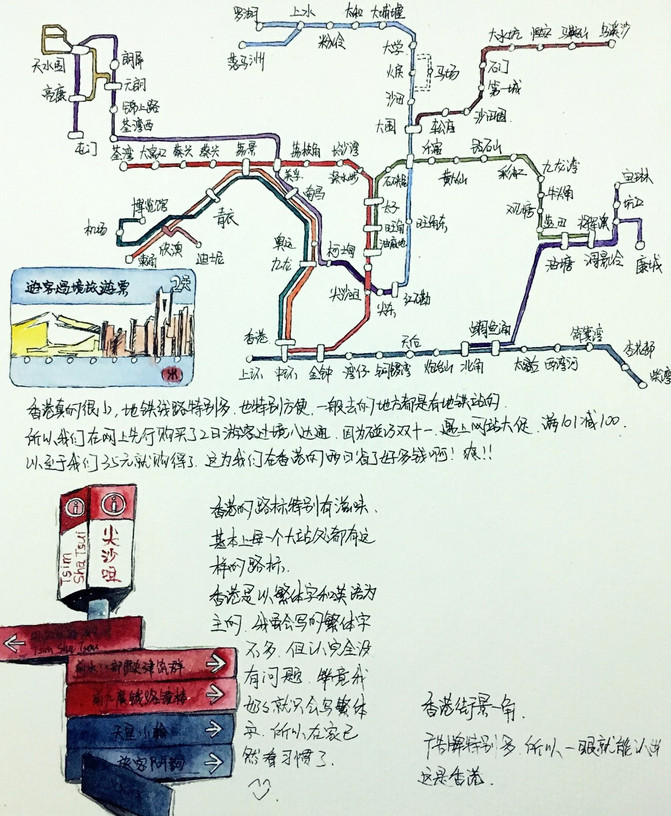 罗湖
上水
粉岭
太和
大埔墟
落马洲
大学
火炭
马场
沙田
大围
大水坑
恒安
马鞍山
乌溪沙
石门
第一城
沙田围
车公庙
天水围
朗屏
元朗
锦上路
荃湾西
屯门
荃湾
大窝口
葵兴
葵芳
荔景
美孚
荔枝角
长沙湾
深水埗
南昌
石硖尾
黄大仙
钻石山
彩虹
九龙湾
牛头角
观塘
蓝田
油塘
调景岭
将军澳
坑口
宝琳
康城
太子
旺角
油麻地
旺角东
博览馆
机场
青衣
欣澳
东涌
迪士尼
奥运
九龙
柯士甸
尖沙咀
尖东
红磡
香港
上环
中环
金钟
湾仔
铜锣湾
天后
炮台山
北角
鲗鱼涌
太古
西湾河
筲箕湾
柴湾
游客过境旅游票
2天
香港真的很小，地铁线路特别多，也特别方便，一般去的地方都是有地铁站的.
所以我们在网上先行购买了2日游客过境八达通，因为碰巧双十一，遇上网站大促，满101减100.
以至于我们35元就购得了.这为我们在香港的两日省了好多钱啊！爽!!
i
i
Tsim
Sha Tsui
尖沙咀
Tsim Sha Tsui
前九广铁路钟楼
天星小轮
香港的路标特别有滋味.
基本上每一个大站处都有这
样的路标.
香港是以繁体字和英语为
主的.我会写的繁体字
不多，但认完全没
有问题.毕竟我
奶奶就只会写繁体
字.所以在家已
然看习惯了.
香港街景一角.
广告牌特别多，所以一眼就能认出
这是香港.